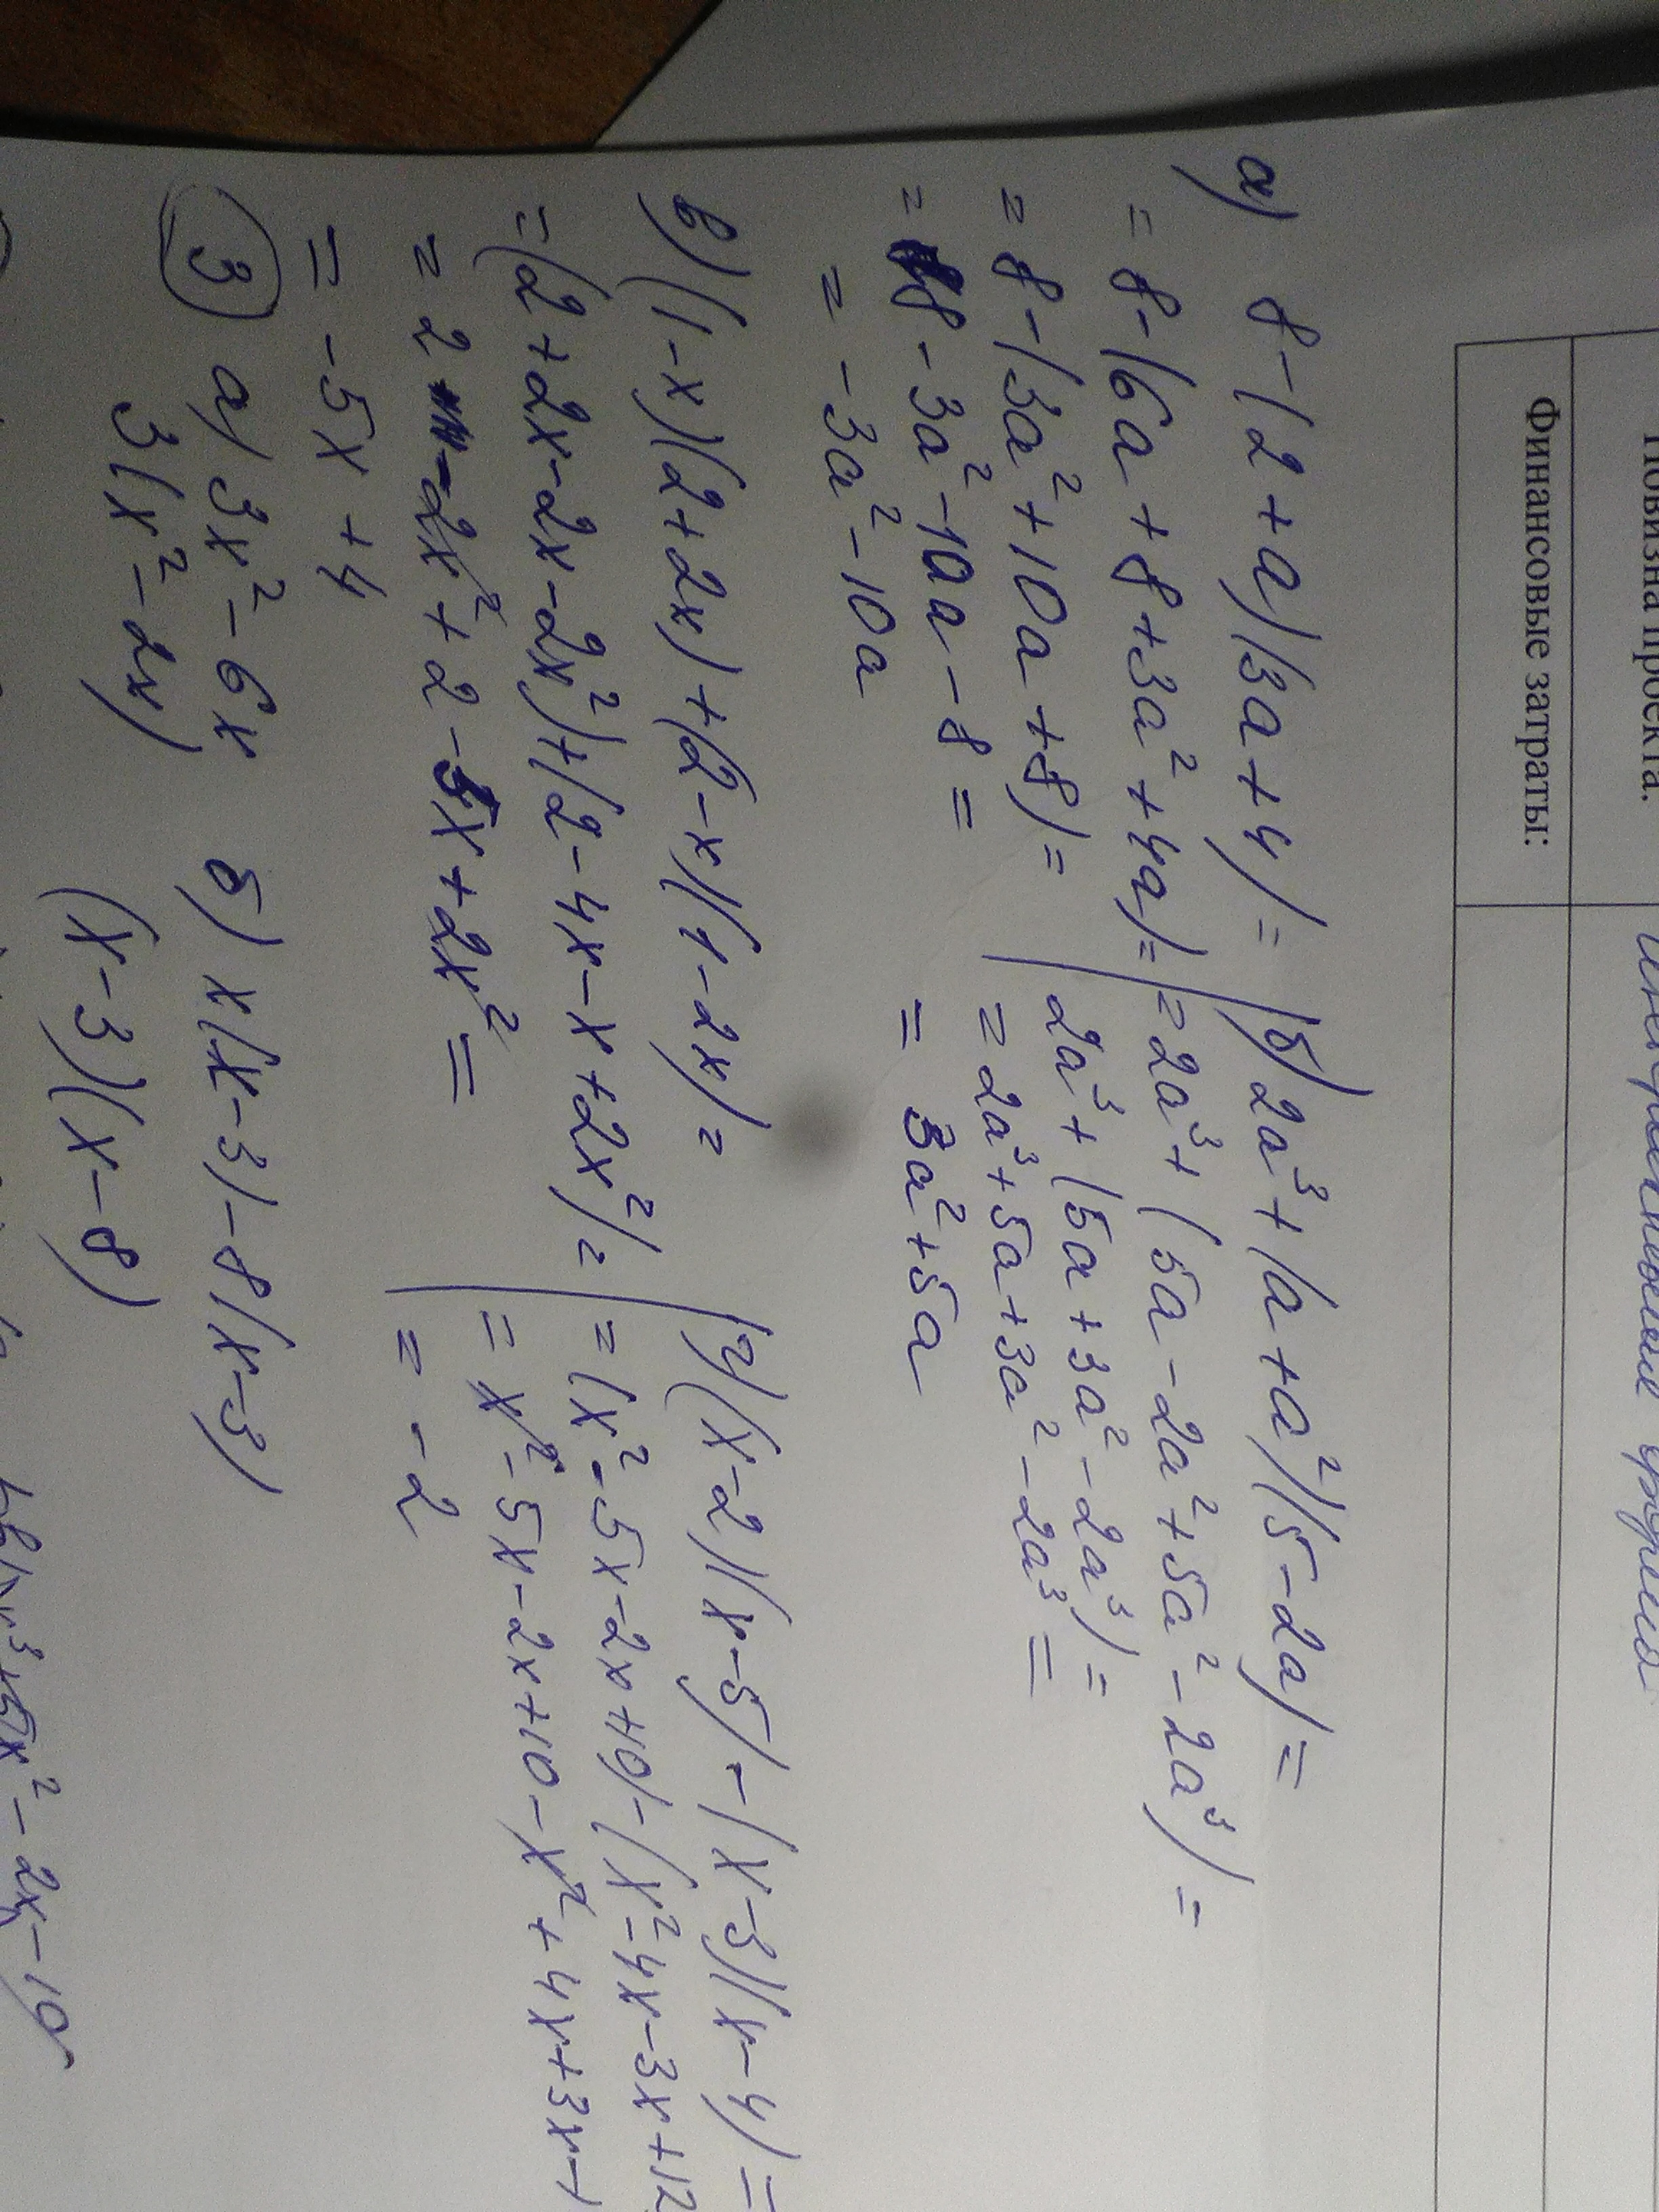 Новизна проекта.
Финансовые затраты:
а) 8-(2+a)(3a+4)=
=8-(6a+8+3a²+4a)=
=8-(3a²+10a+8)=
=8-3a²-10a-8=
=-3a²-10a
б) 2a³+(a+a²)(5-2a)=
=2a³+(5a-2a²+5a²-2a³)=
2a³+(5a+3a²-2a³)=
=2a³+5a+3a²-2a³=
=3a²+5a
в) (1-x)(2+2x)+(2-x)(1-2x)=
=(2+2x-2x-2x²)+(2-4x-x+2x²)=
=2-2x²+2-5x+2x²=
=-5x+4
г) (x-2)(x-5)-(x-3)(x-4)=
=(x²-5x-2x+10)-(x²-4x-3x+12
=x²-5x-2x+10-x²+4x+3x-1
=-2
③ а) 3x²-6x
3(x²-2x)
б) x(x-3)-8(x-3)
(x-3)(x-8)
x³+5x²-2x-10